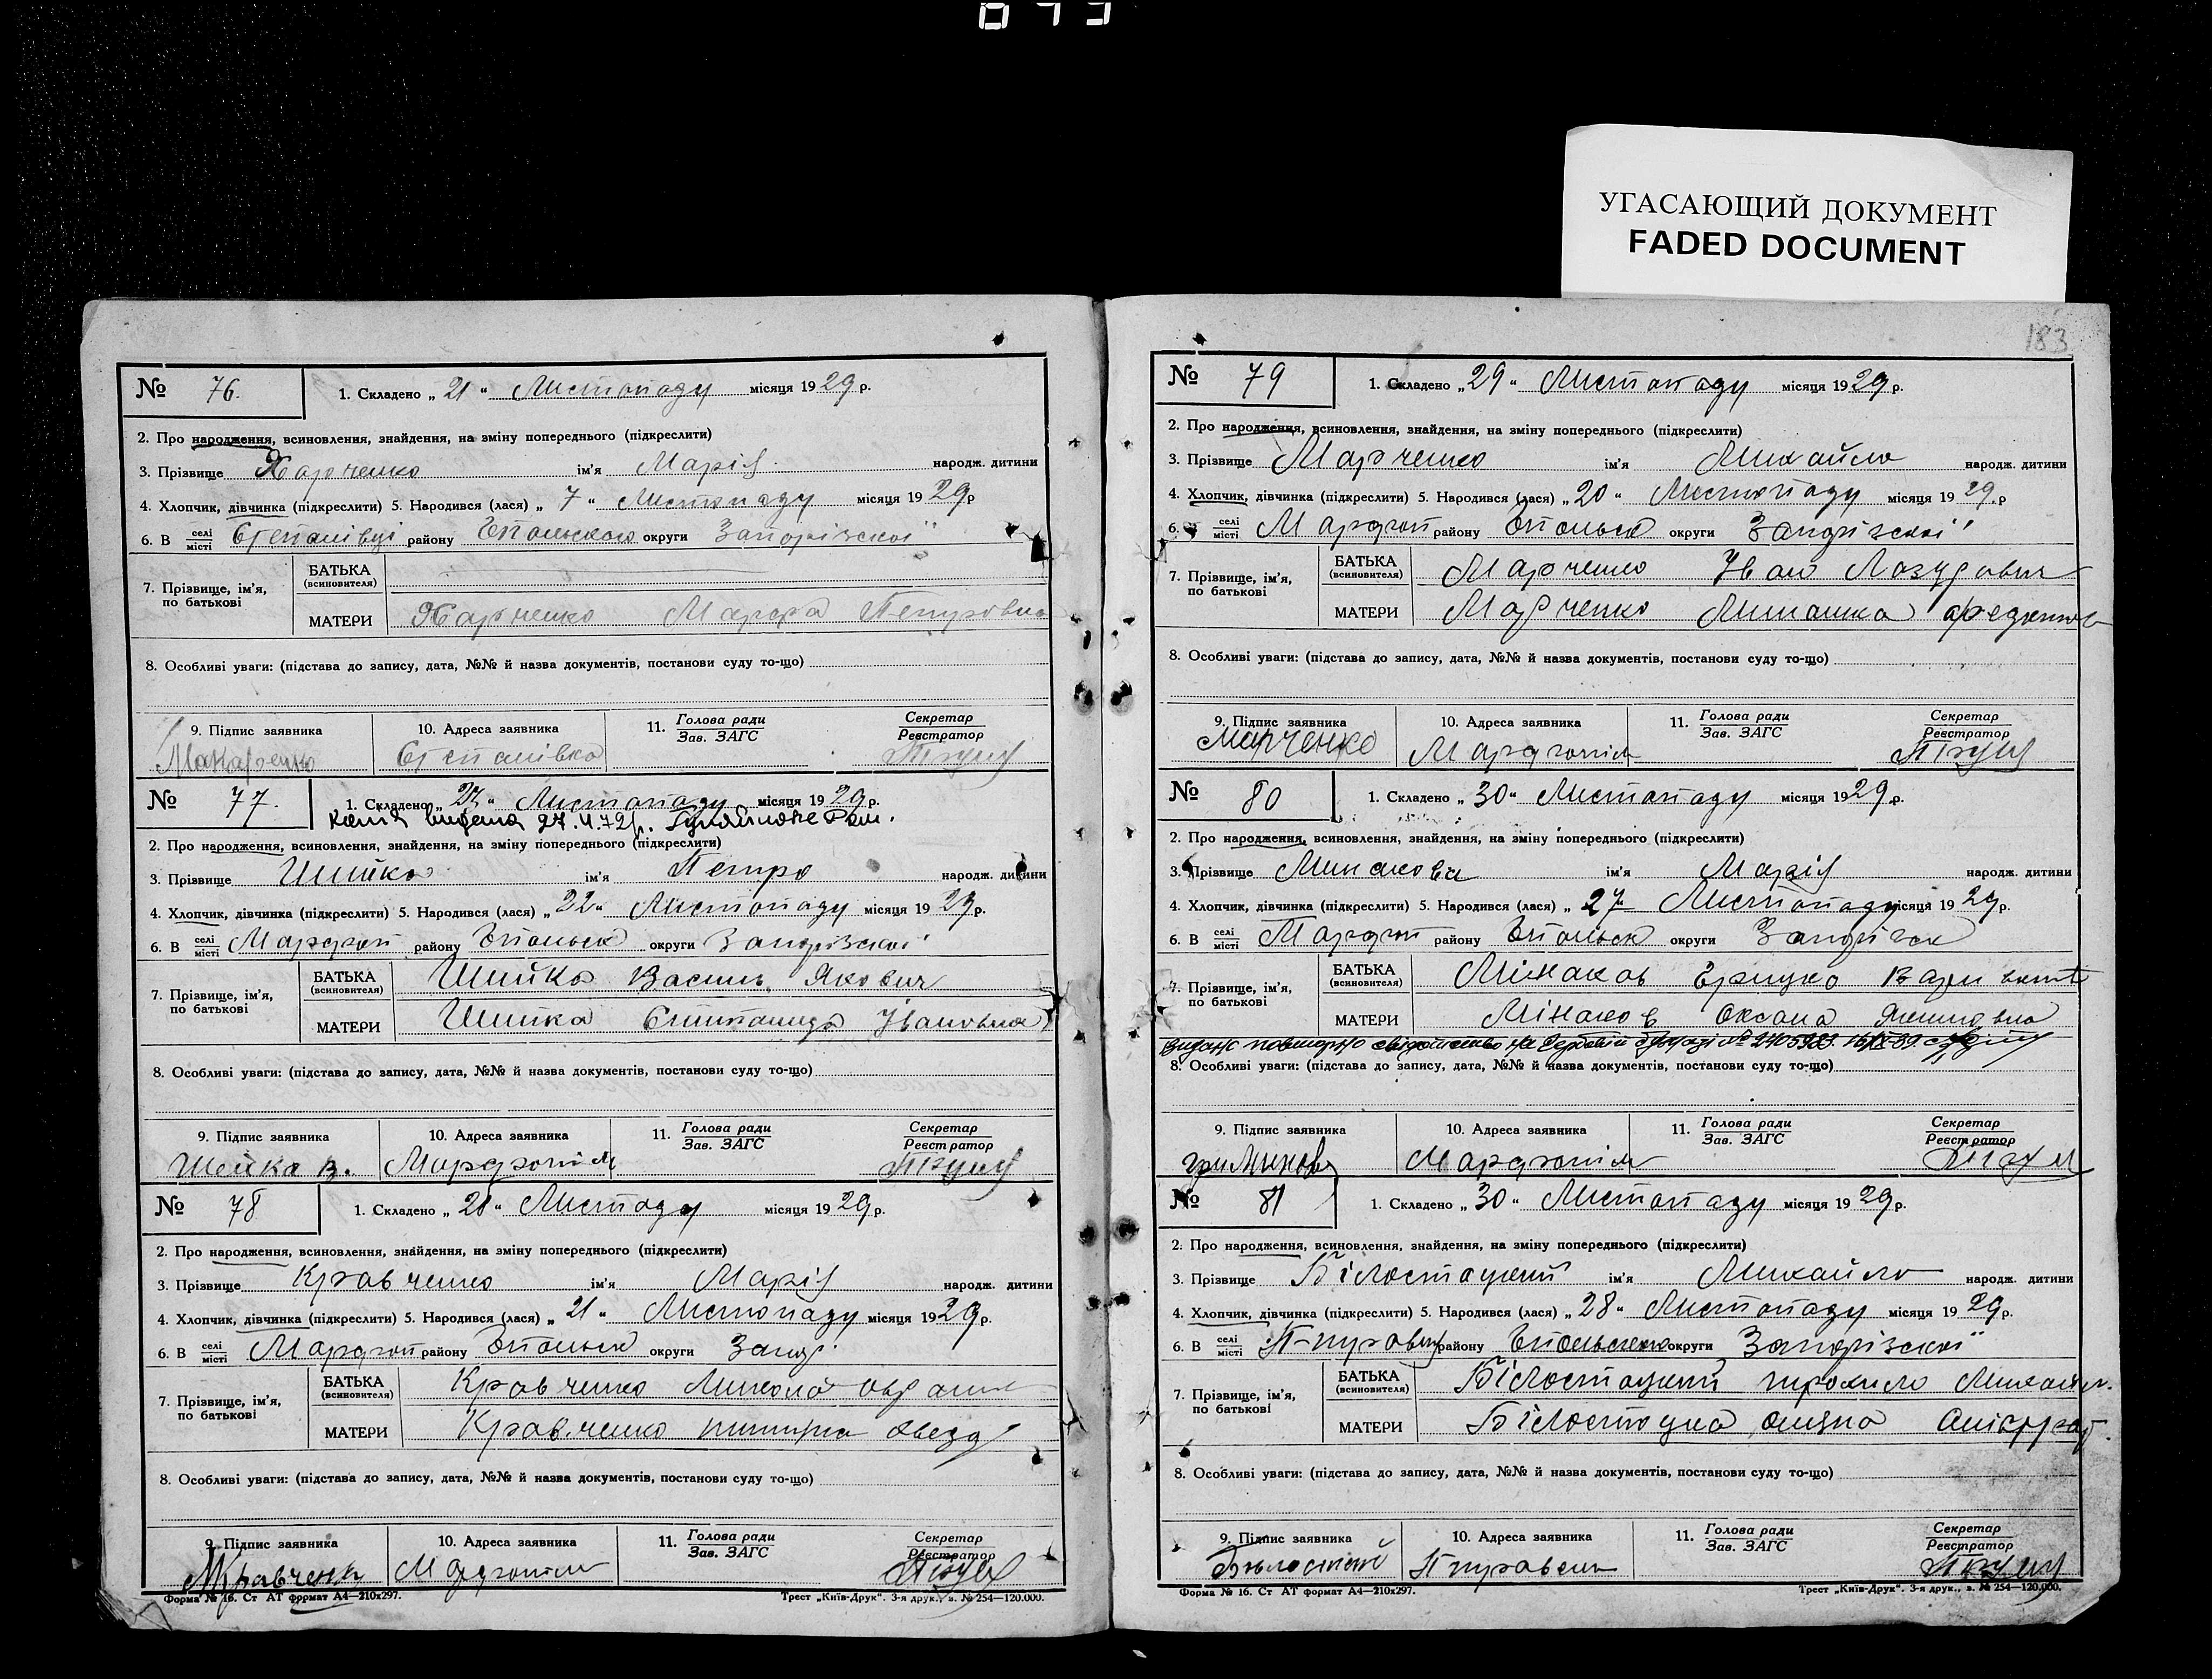 УГАСАЮЩИЙ ДОКУМЕНТ
FADED DOCUMENT
183
№ 76. 1. Складено „ 21 “ Листопаду місяця 1929 р.
2. Про народження, всиновлення, знайдення, на зміну попереднього (підкреслити)
3. Прізвище Харченко ім'я Марія народж. дитини
4. Хлопчик, дівчинка (підкреслити) 5. Народився (лася) „ 7 “ Листопаду місяця 1929 р
6. В селі місті Степанівці району округи Запорізської
7. Прізвище, ім'я, по батькові
БАТЬКА (всиновителя)
МАТЕРИ Харченко Марфа Петровна
8. Особливі уваги: (підстава до запису, дата, №№ й назва документів, постанови суду то-що)
9. Підпис заявника 10. Адреса заявника 11. Голова ради Зав. ЗАГС Секретар Реєстратор
Макаренко Степанівка
№ 77. 1. Складено „ “ Листопаду місяця 1929 р.
видана 27. 4. 72 р.
2. Про народження, всиновлення, знайдення, на зміну попереднього (підкреслити)
3. Прізвище Шийко ім'я Петро народж. дитини
4. Хлопчик, дівчинка (підкреслити) 5. Народився (лася) „ 22 “ Листопаду місяця 1929 р.
6. В селі місті Марфоп району округи Запорізської
7. Прізвище, ім'я, по батькові
БАТЬКА (всиновителя) Шийко Василь Якович
МАТЕРИ Шийка Івановна
8. Особливі уваги: (підстава до запису, дата, №№ й назва документів, постанови суду то-що)
9. Підпис заявника 10. Адреса заявника 11. Голова ради Зав. ЗАГС Секретар Реєстратор
Шейко В. Марфопіль
№ 78 1. Складено „ “ Листопаду місяця 1929 р.
2. Про народження, всиновлення, знайдення, на зміну попереднього (підкреслити)
3. Прізвище Кравченко ім'я Марія народж. дитини
4. Хлопчик, дівчинка (підкреслити) 5. Народився (лася) „ 21 “ Листопаду місяця 1929 р.
6. В селі місті Марфоп району округи Запор.
7. Прізвище, ім'я, по батькові
БАТЬКА (всиновителя) Кравченко Микола
МАТЕРИ Кравченко
8. Особливі уваги: (підстава до запису, дата, №№ й назва документів, постанови суду то-що)
9. Підпис заявника 10. Адреса заявника 11. Голова ради Зав. ЗАГС Секретар Реєстратор
Кравченко Марфопіль
Форма № 16. Ст АТ формат А4—210х297. Трест „Київ-Друк“. 3-я друк., з. № 254—120.000.
№ 79 1. Складено „ 29 “ Листопаду місяця 1929 р.
2. Про народження, всиновлення, знайдення, на зміну попереднього (підкреслити)
3. Прізвище Марченко ім'я Михайло народж. дитини
4. Хлопчик, дівчинка (підкреслити) 5. Народився (лася) „ 20 “ Листопаду місяця 1929 р
6. В селі місті Марфоп району округи Запорізської
7. Прізвище, ім'я, по батькові
БАТЬКА (всиновителя) Марченко Іван Лазурович
МАТЕРИ Марченко
8. Особливі уваги: (підстава до запису, дата, №№ й назва документів, постанови суду то-що)
9. Підпис заявника 10. Адреса заявника 11. Голова ради Зав. ЗАГС Секретар Реєстратор
Марченко Марфопіль
№ 80 1. Складено „ 30 “ Листопаду місяця 1929 р.
2. Про народження, всиновлення, знайдення, на зміну попереднього (підкреслити)
3. Прізвище Минакова ім'я Марія народж. дитини
4. Хлопчик, дівчинка (підкреслити) 5. Народився (лася) „ 27 Листопаду місяця 1929 р.
6. В селі місті Марфоп району округи
7. Прізвище, ім'я, по батькові
БАТЬКА (всиновителя) Мінаков Грицко
МАТЕРИ Мінаков Оксана
Видано повторно свідоцтво на гербовій бумазі №
8. Особливі уваги: (підстава до запису, дата, №№ й назва документів, постанови суду то-що)
9. Підпис заявника 10. Адреса заявника 11. Голова ради Зав. ЗАГС Секретар Реєстратор
Марфопіль
№ 81 1. Складено „ 30 “ Листопаду місяця 1929 р.
2. Про народження, всиновлення, знайдення, на зміну попереднього (підкреслити)
3. Прізвище Білостоцкий ім'я Михайло народж. дитини
4. Хлопчик, дівчинка (підкреслити) 5. Народився (лася) „ 28 “ Листопаду місяця 1929 р.
6. В селі місті району округи Запорізської
7. Прізвище, ім'я, по батькові
БАТЬКА (всиновителя) Білостоцкий
МАТЕРИ Білостоцка
8. Особливі уваги: (підстава до запису, дата, №№ й назва документів, постанови суду то-що)
9. Підпис заявника 10. Адреса заявника 11. Голова ради Зав. ЗАГС Секретар Реєстратор
Форма № 16. Ст АТ формат А4—210х297. Трест „Київ-Друк“. 3-я друк., з. № 254—120.000.